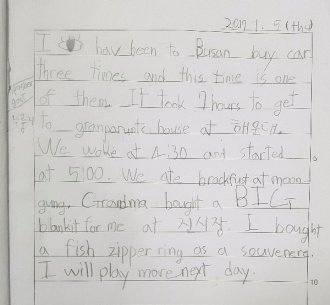 2017. 1. 5 (thu)
I hav been to Busan buy car
three times and this time is one
of them. It took 7 hours to get
to granparents house at 해운대.
We woke at 4:30 and started
at 5:00. We ate brackfust at moon
gung. Grandma bought a BIG
blankit for me at 진시장. I bought
a fish zipper ring as a souvenere.
I will play more next day.
10